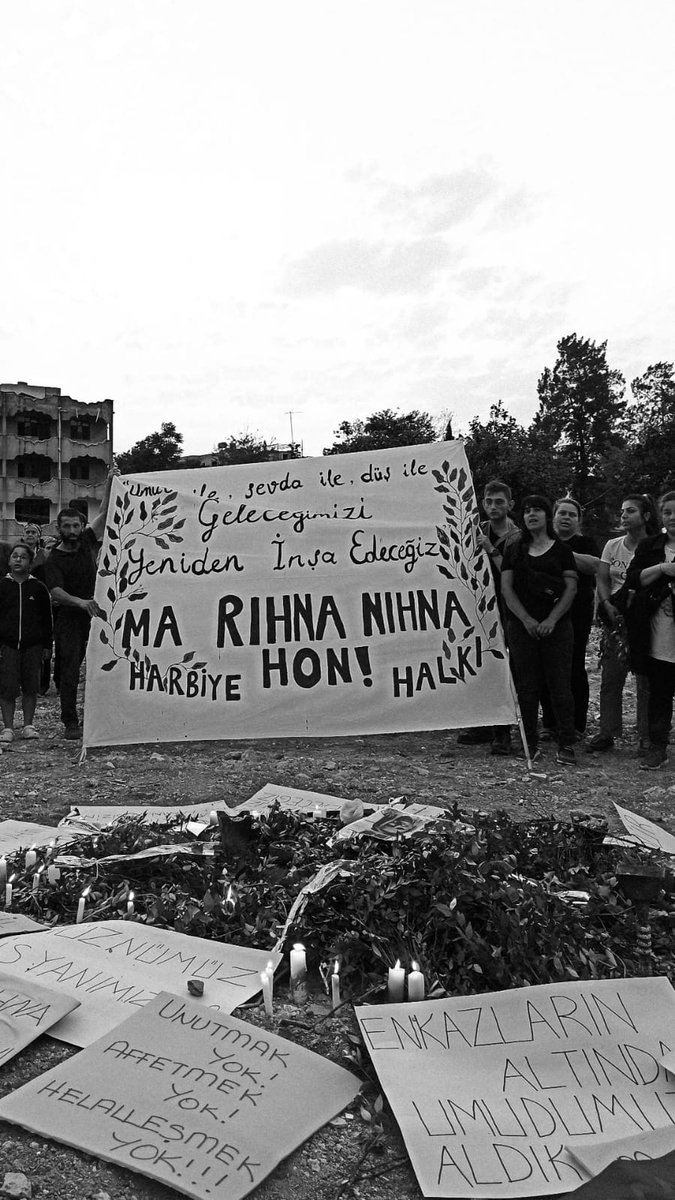 "Umut ile, sevda ile, düş ile
Geleceğimizi
Yeniden İnşa Edeceğiz
MA RIHNA NIHNA
HON!
HARBİYE HALKI
UNUTMAK
YOK!
AFFETMEK
YOK!
HELALLEŞMEK
YOK!!!
ENKAZLARIN
ALTINDA
UMUDUMUZ
ALDIK